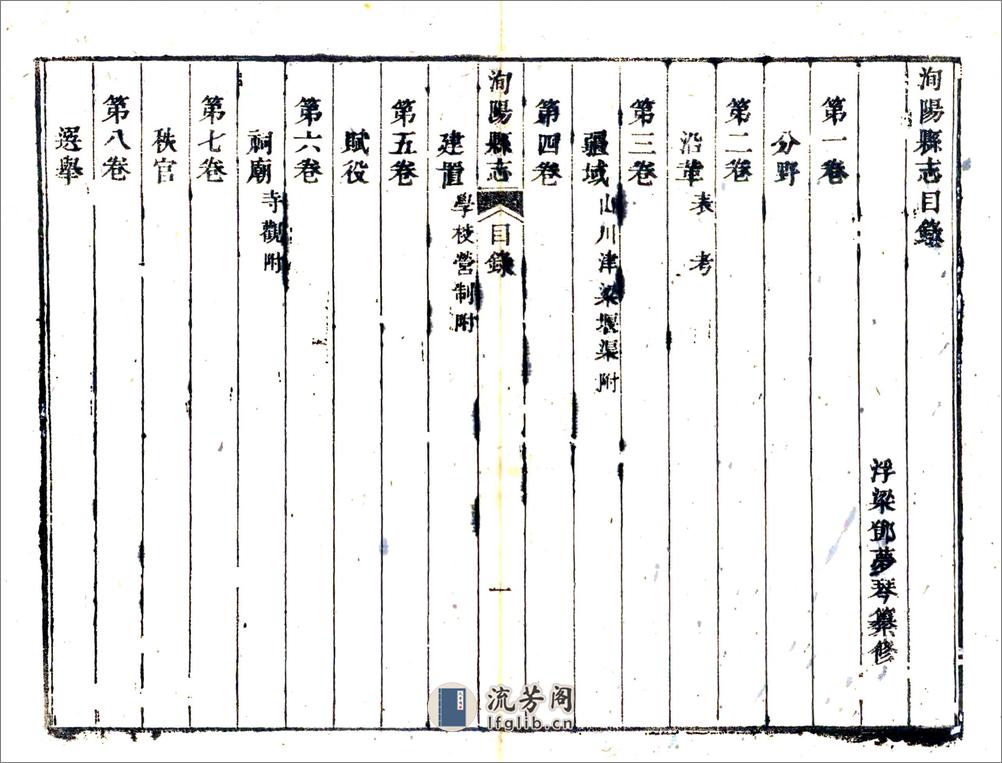 洵陽縣志目錄
浮梁鄧夢琴纂修
第一卷
分野
第二卷
沿革 表 考
第三卷
疆域 山川津梁堰渠附
第四卷
洵陽縣志 目錄 一
建置 學校營制附
第五卷
賦役
第六卷
祠廟 寺觀附
第七卷
秩官
第八卷
選舉
流芳阁
lfglib.cn